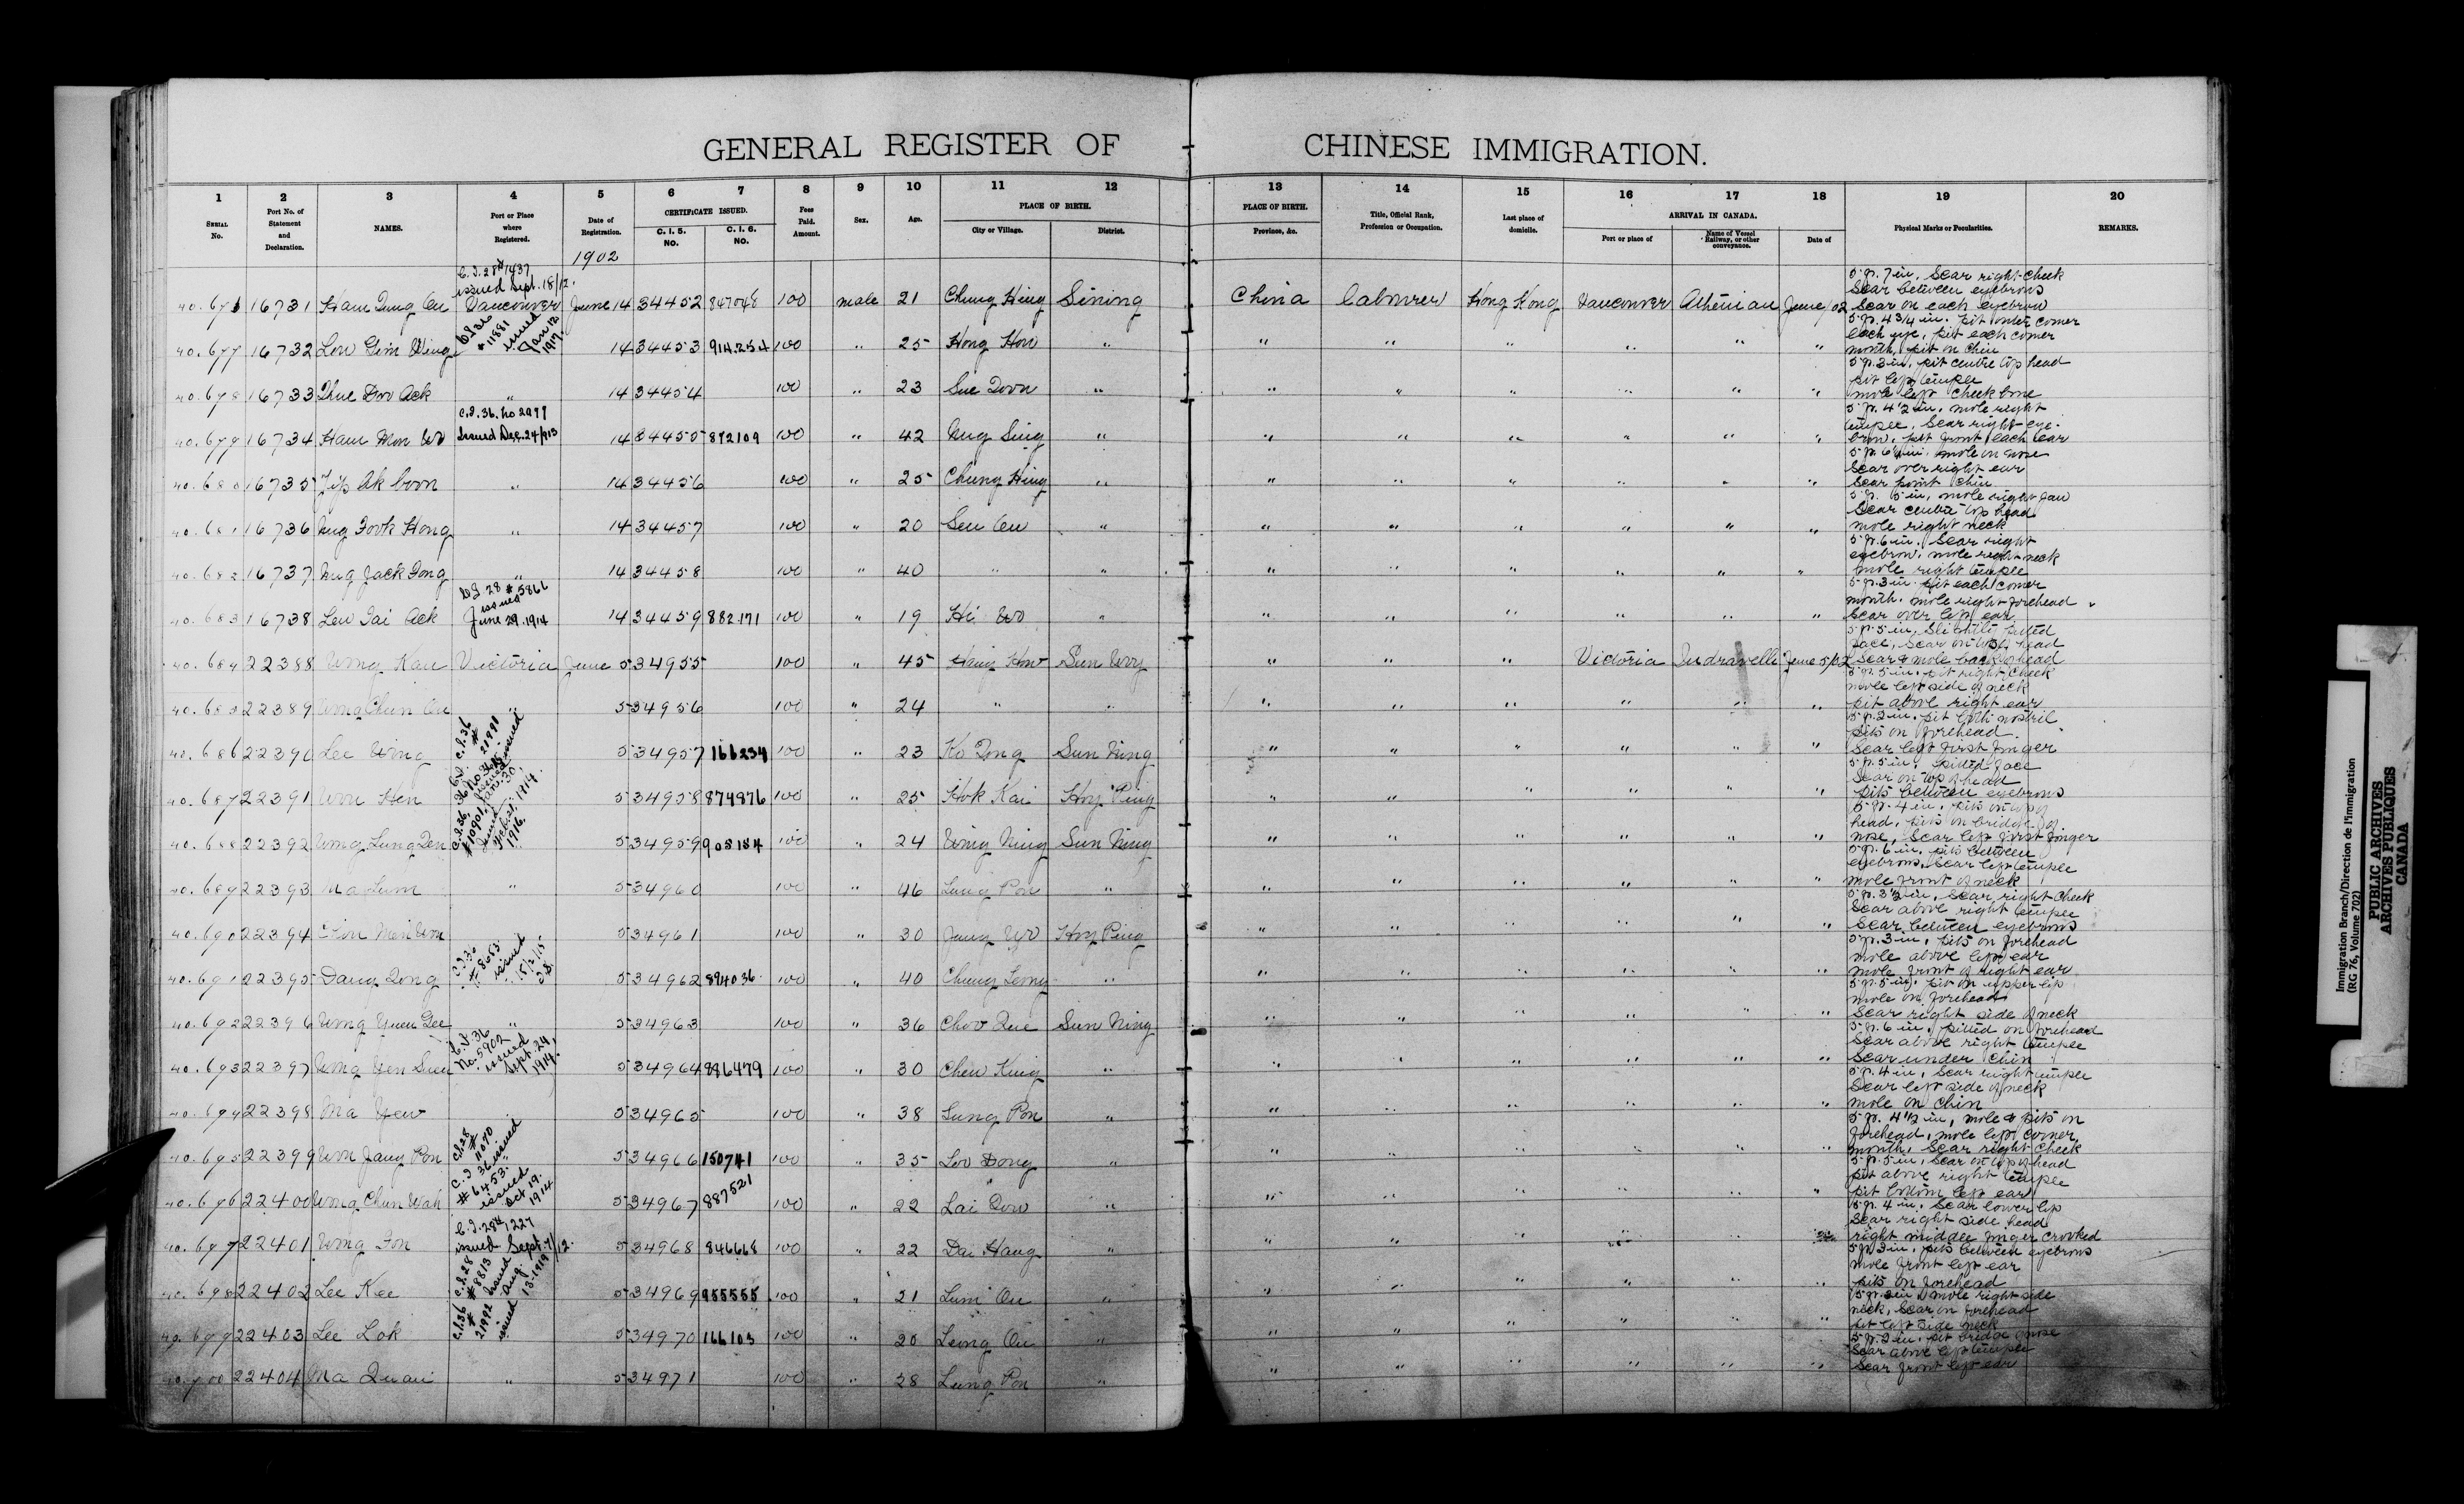 GENERAL REGISTER OF CHINESE IMMIGRATION.
1 2 3 4 5 6 7 8 9 10 11 12 13 14 15 16 17 18 19 20
SERIAL No. Port No. of Statement and Declaration. NAMES. Port or Place where Registered. Date of Registration. CERTIFICATE ISSUED. C. I. 5. No. C. I. 6. No. Fees Paid. Amount. Sex. Age. PLACE OF BIRTH. City or Village. District. PLACE OF BIRTH. Province, &c. Title, Official Rank, Profession or Occupation. Last place of domicile. ARRIVAL IN CANADA. Port or place of Name of Vessel Railway, or other conveyance. Date of Physical Marks or Peculiarities. REMARKS.
1902
C.I. 28 # 1437
issued Sept. 18/12.
16731 Ham Vancouver June 14 34452 100 male 21 Chung Hing Sining China labourer Hong Kong Vancouver Athenian June /02
5 ft. 7 in, Scar right cheek
Scar between eyebrows
Scar on each eyebrow
C.I. 36 # 11881 issued Jan 12 1917.
40.677 16732 Lou Gim 14 34453 914.254 100 " 25 Hong Hou " " " " " " "
5 ft. 4 3/4 in. pit outer corner
each eye, pit each corner
mouth, pit on chin
40.678 16733 Ack " 14 34454 100 " 23 Sue " " " " " " "
5 ft. 3 in, pit centre top head
pit left temple
mole left cheek bone
C.I. 36. No 2977
Issued Dec. 24/913
40.679 16734 Ham Mon Wo 14 34455 872109 100 " 42 Sing " " " " " " "
5 ft. 4 1/2 in, mole right
temple, Scar right eye-
brow, pit front each ear
40.680 16735 " 14 34456 100 " 25 Chung Hing " " " " " " "
mole on nose
Scar over right ear
Scar point chin
40.681 16736 Fook Hong " 14 34457 100 " 20 " " " " " " "
5 ft. 5 in, mole right jaw
Scar centre top head
mole right neck
40.682 16737 Jack " 14 34458 100 " 40 " " " " " " " "
5 ft. 6 in. Scar right
eyebrow, mole right neck
mole right temple
C.I. 28 # 5866
issued
June 29. 1914
40.683 16738 Leu Gai Ack 14 34459 882.171 100 " 19 Hi Wo " " " " " " "
5 ft. 3 in. pit each corner
mouth. mole right forehead
Scar over left ear
40.684 22388 Wong Kau Victoria June 5 34955 100 " 45 Sun Wuy " " " Victoria Indravelli June 5/02
5 ft. 5 in, Slightly pitted
face, Scar on top head
Scar & mole back head
22389 Wong Chun " 5 34956 100 " 24 " " " " " " " "
5 ft. 5 in. pit right cheek
mole left side of neck
pit above right ear
C.I. 36 # 21991 issued
40.686 22390 Lee Wing 5 34957 166234 100 " 23 Ko Tong Sun Ning " " " " " "
5 ft. 2 in. pit left nostril
pits on forehead.
Scar left first finger
40.687 22391 Hen 5 34958 874876 100 " 25 Hok Kai Hoy Ping " " " " " "
5 ft. 5 in. pitted face
Scar on top of head
pits between eyebrows
C.I. 36, #10901, issued Feb. 21. 1916.
40.688 22392 Wong Lung 5 34959 905184 100 " 24 Wing Ning Sun Ning " " " " " "
5 ft. 4 in. pits on top of
head, pits on bridge of
nose, Scar left first finger
40.689 22393 Ma Lum " 5 34960 100 " 46 Lung Pon " " " " " " "
5 ft. 6 in, pits between
eyebrows, Scar left temple
mole front of neck
40.690 22394 5 34961 100 " 30 Jung Wo Hoy Ping " " " " " "
5 ft. 3 1/2 in, Scar right cheek
Scar above right temple
Scar between eyebrows
C.I. 36 # 8653 issued 15/2/15
40.691 22395 Dang Tong 5 34962 894036 100 " 40 Chung " " " " " " "
5 ft. 3 in, pits on forehead
mole above left ear
mole front of right ear
40.692 22396 Wong Yuen Gee " 5 34963 100 " 36 Choo Sun Ning " " " " " "
5 ft. 5 in, pit on upper lip
mole on forehead
Scar right side of neck
C.I. 36 No. 5902 issued Sept. 24, 1914.
40.693 22397 Wong 5 34964 886479 100 " 30 Chew King " " " " " " "
5 ft. 6 in, pitted on forehead
Scar above right temple
Scar under chin
40.694 22398 Ma Yew 5 34965 100 " 38 Lung Pon " " " " " " "
5 ft. 4 in, Scar right temple
Scar left side of neck
mole on chin
C.I. 28 # 11070 issued
40.695 22399 Jang Pon 5 34966 150741 100 " 35 Loo Dong " " " " " " "
5 ft. 4 1/2 in, mole & pits on
forehead, mole left corner
mouth, Scar right cheek
C.I. 36 # 6453 issued Oct 19. 1914
40.696 22400 Wong Chun Wah 5 34967 887521 100 " 22 Lai " " " " " " "
5 ft. 5 in, Scar on top of head
pit above right temple
pit bottom left ear
C.I. 28 # 1227
issued Sept. 7/12.
40.697 22401 Wong Fon 5 34968 846668 100 " 22 Dai Hang " " " " " " "
5 ft. 4 in. Scar lower lip
Scar right side head
right middle finger crooked
C.I. 28 # 8813 issued Aug. 13. 1919
40.698 22402 Lee Kee 5 34969 955555 100 " 21 Lum On " " " " " " "
5 ft. 3 in. pits between eyebrows
mole front left ear
pits on forehead
C.I. 36 # 21992 issued
40.699 22403 Lee Lok 5 34970 166103 100 " 20 Leong On " " " " " " "
mole right side
neck, Scar on forehead
pit left side neck
22404 Ma Quai " 5 34971 100 " 28 Lung Pon " " " " " " "
5 ft. 2 in. pit bridge nose
Scar above left temple
Scar front left ear
Immigration Branch/Direction de l'immigration
(RG 76, Volume 702)
PUBLIC ARCHIVES
ARCHIVES PUBLIQUES
CANADA